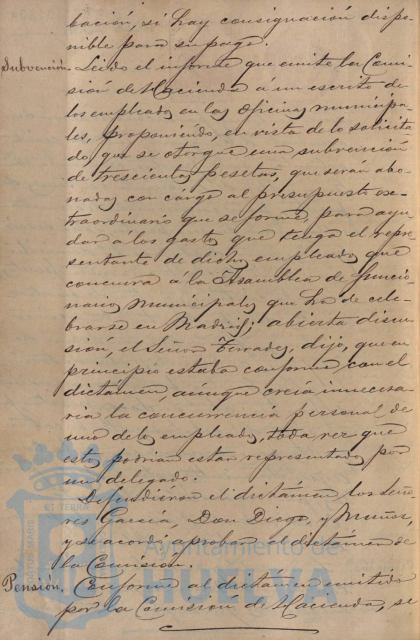 bación, si hay consignación dispo-
nible para su pago.
Subvención. Leido el informe que emite la Comi-
sión de Hacienda á un escrito de
los empleados en las oficinas municipa-
les, proponiendo, en vista de lo solicita-
do, que se otorgue una subvención
de trescientas pesetas, que serán abo-
nadas con cargo al presupuesto ex-
traordinario que se forme, para ayu-
dar á los gastos que tenga el repre-
sentante de dichos empleados que
concurra á la Asamblea de funcio-
narios municipales que ha de cele-
brarse en Madrid; abierta discu-
sión, el Señor Terrades, dijo, que en
principio estaba conforme con el
dictamen, aúnque creía innecesa-
ria la concurrencia personal de
uno de los empleados, toda vez que
estos podrian estar representados por
un delegado.
Defendieron el dictámen los Seño-
res García, Don Diego, y Muñoz,
y se acordó aprobar el dictámen de
la Comisión.
Pensión. Conforme al dictámen emitido
por la Comisión de Hacienda, se
Ayuntamiento de
HUELVA